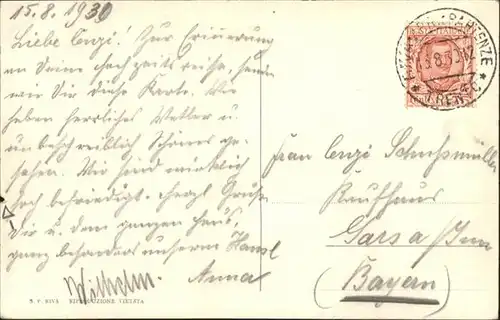 15.8.1930
Liebe Cenzi! Zur Erinnerung
an Deine Hochzeitsreise, senden
wir Dir diese Karte. Wir
haben herrliches Wetter u.
unbeschreiblich Schönes ge-
sehen. Wir sind wirklich
hoch befriedigt. Herzl. Grüße
Dir u. dem ganzen Haus,
ganz besonders unserm Hansl
Wilhelm. Anna
Frau Cenzi
Kaufhaus
Gars a/Inn
(Bayern)
S. F. RIVA RIPRODUZIONE VIETATA
FIRENZE